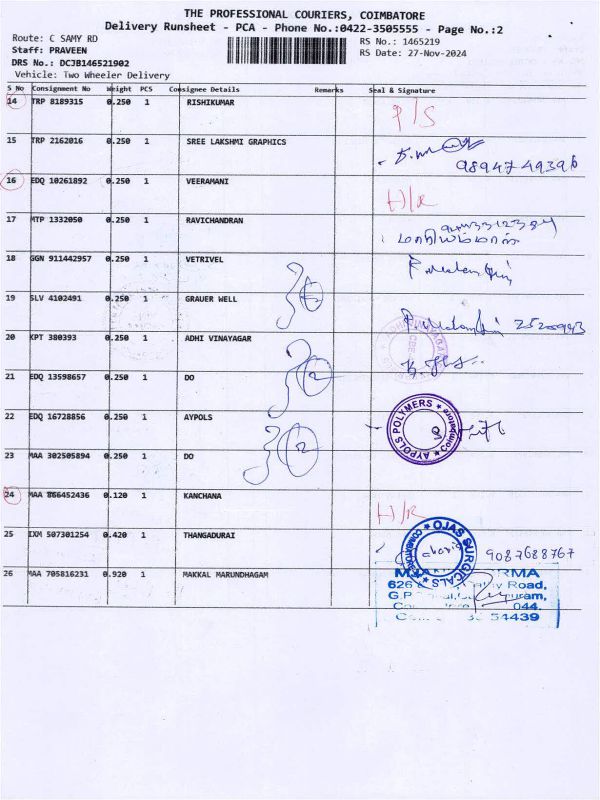 THE PROFESSIONAL COURIERS, COIMBATORE
Delivery Runsheet - PCA - Phone No.:0422-3505555 - Page No.:2
Route: C SAMY RD
RS No.: 1465219
Staff: PRAVEEN
RS Date: 27-Nov-2024
DRS No.: DCJB146521902
Vehicle: Two Wheeler Delivery
S No Consignment No Weight PCS Consignee Details Remarks Seal & Signature
14 TRP 8189315 0.250 1 RISHIKUMAR P/S
15 TRP 2162016 0.250 1 SREE LAKSHMI GRAPHICS
16 EDQ 10261892 0.250 1 VEERAMANI H/R
17 MTP 1332050 0.250 1 RAVICHANDRAN
18 GGN 911442957 0.250 1 VETRIVEL
19 SLV 4102491 0.250 1 GRAUER WELL
20 KPT 380393 0.250 1 ADHI VINAYAGAR
21 EDQ 13598657 0.250 1 DO 2
22 EDQ 16728856 0.250 1 AYPOLS AYPOLS POLYMERS Coimbatore
23 MAA 302505894 0.250 1 DO 2
24 MAA 866452436 0.120 1 KANCHANA H/R
25 IXM 507301254 0.420 1 THANGADURAI OJAS SURGICALS COIMBATORE 9087688767
26 MAA 705816231 0.920 1 MAKKAL MARUNDHAGAM
626 Road,
044.
54439